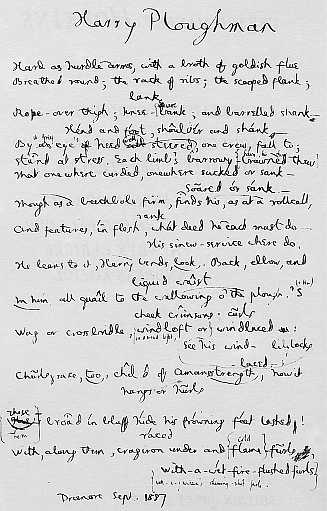 Harry Ploughman
Hard as hurdle arms, with a broth of goldish flue
Breathed round; the rack of ribs; the scooped flank;
lank
Rope-over thigh; knee-bank; and barrelled shank—
Head and foot, shoulder and shank—
By a grey eye's heed steered well, one crew, fall to;
Stand at stress. Each limb's barrowy brawned thew
That onewhere curded, onewhere sucked or sank—
Soared or sank—
Though as a beechbole firm, finds his, as at a rollcall,
rank
And features, in flesh, what deed he each must do—
His sinew-service where do.
He leans to it, Harry bends, look. Back, elbow, and
liquid waist
In him, all quail to the wallowing o' the plough. 'S
cheek crimsons; curls
Wag or crossbridle, windloft or windlaced
See his wind- lilylocks
-laced—;
Churlsgrace, too, child of Amansstrength, how it
hangs or hurls
Them— broad in bluff hide his frowning feet lashed!
raced
With, along them, cragiron under and cold furls—
With-a-wet-fire-flushed furls
Dromore Sept. 1887